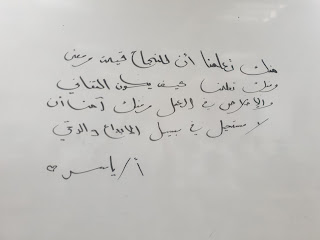 منك تعلمنا أن للنجاح قيمة ومعنى
ومنك تعلمنا كيف يكون التفاني
والإخلاص في العمل ومنك آمنا أن
لا مستحيل في سبيل الإبداع والرقي
أ/ ياسر